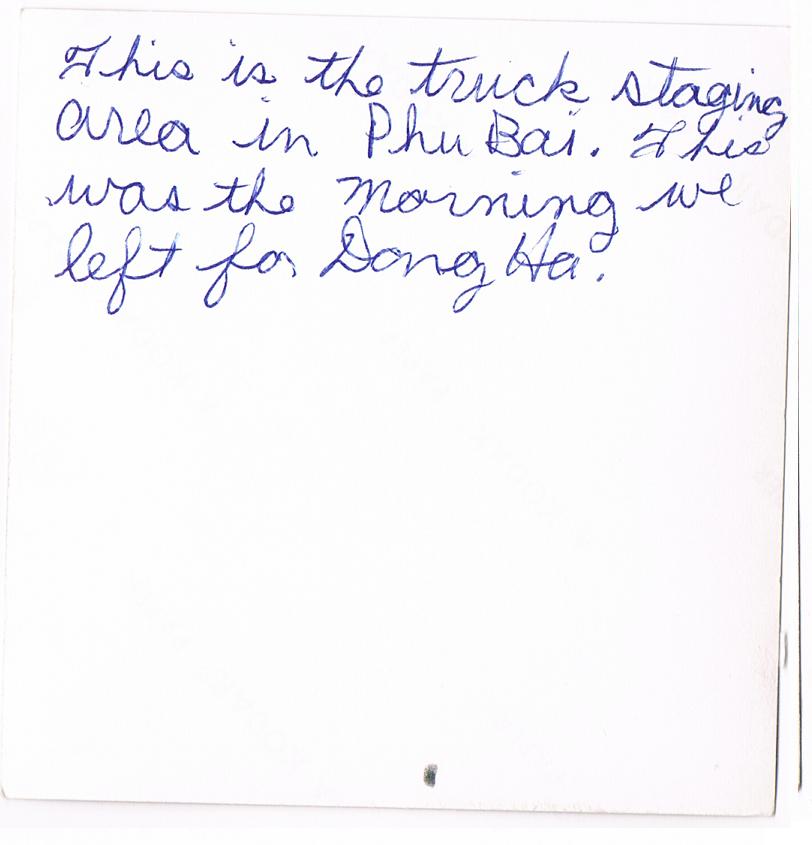 This is the truck staging
area in Phu Bai. This
was the morning we
left for Dong Ha.